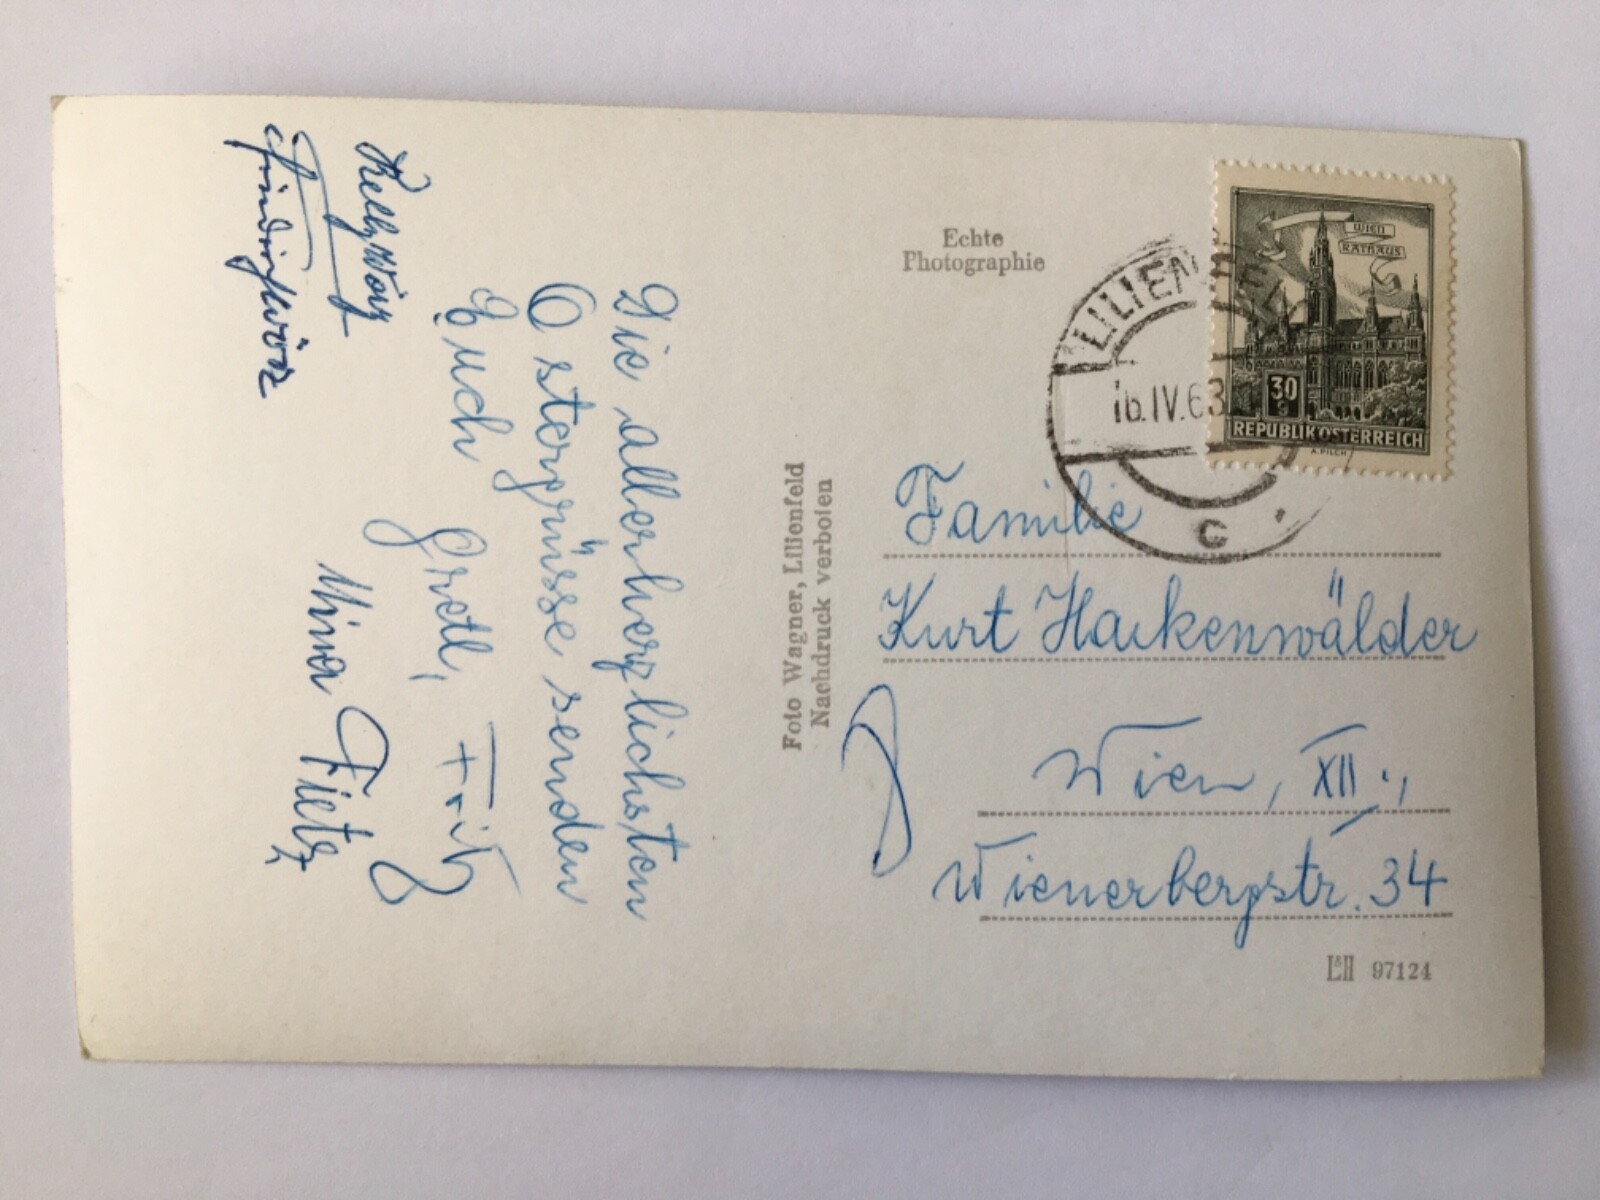 Die allerherzlichsten
Ostergrüsse senden
Euch Gretl, Fritz
Mina Fietz
Echte
Photographie
Foto Wagner, Lilienfeld
Nachdruck verboten
LILIENFELD
16.IV.63
C
WIEN
RATHAUS
30
g
REPUBLIK ÖSTERREICH
A. PILCH
Familie
Kurt Hackenwälder
Wien, XII.,
Wienerbergstr. 34
97124